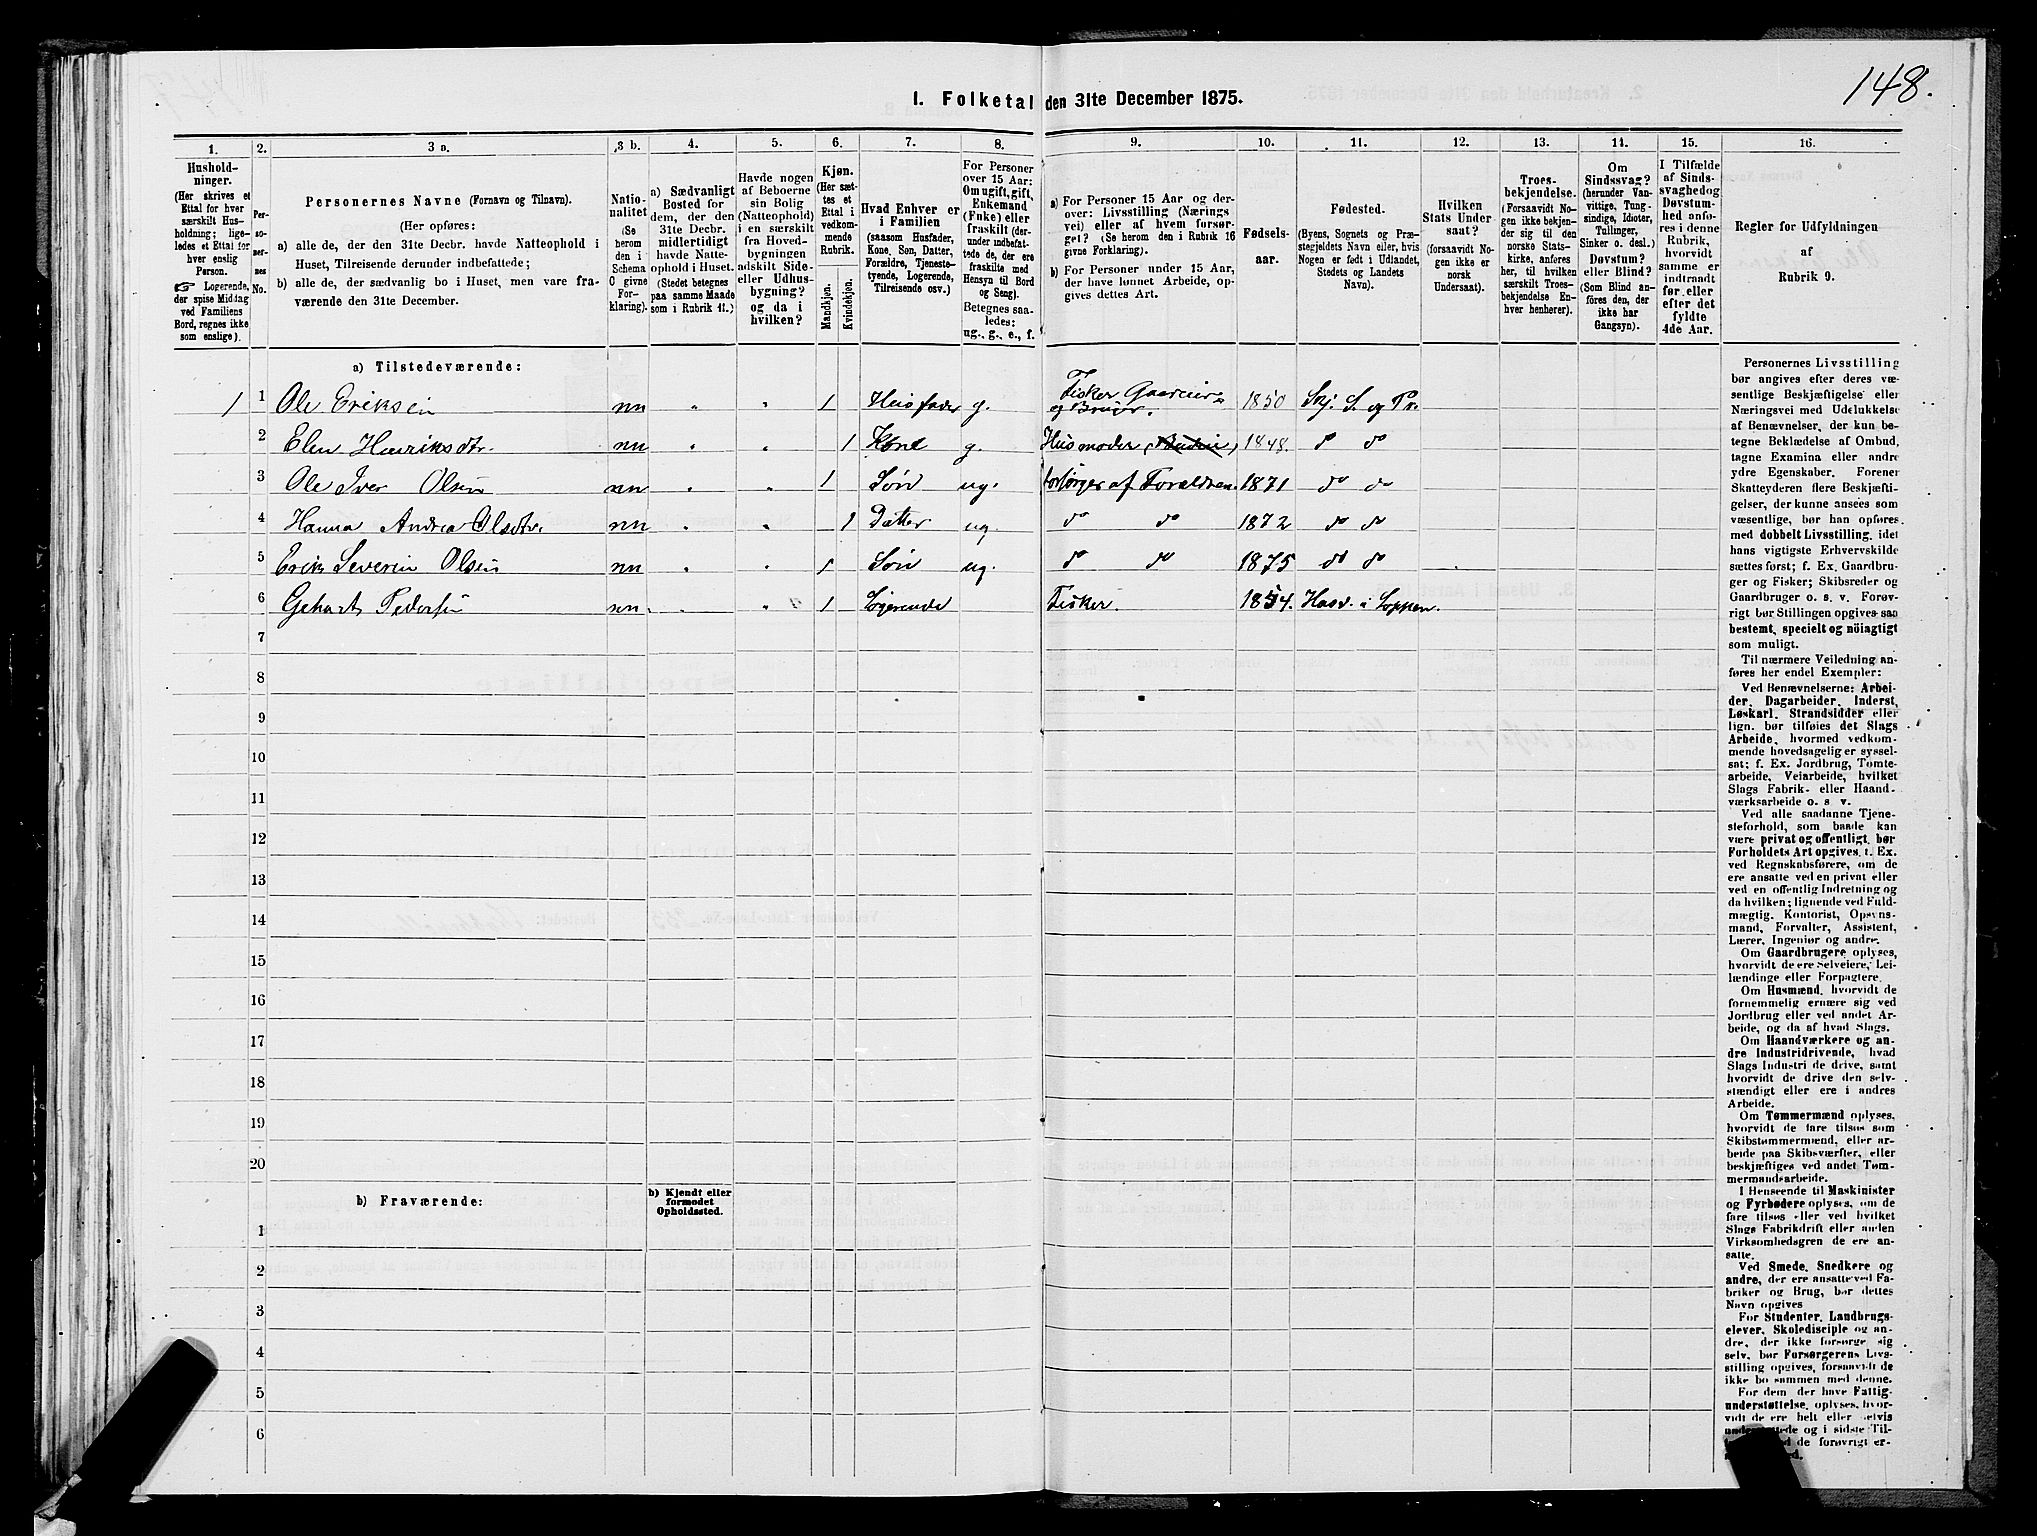 148.
I. Folketal den 31te December 1875.
1. 2. 3 a. 3 b. 4. 5. 6. 7. 8. 9. 10. 11. 12. 13. 14. 15. 16.
Hushold-
ninger.
(Her skrives et
Ettal for hver
særskilt Hus-
holdning; lige-
ledes et Ettal for
hver enslig
Person.
☞ Logerende,
der spise Middag
ved Familiens
Bord, regnes ikke
som enslige).
Per-
so-
ner-
nes
No.
Personernes Navne (Fornavn og Tilnavn).
(Her opføres:
a) alle de, der den 31te Decbr. havde Natteophold i
Huset, Tilreisende derunder indbefattede;
b) alle de, der sædvanlig bo i Huset, men vare fra-
værende den 31te December.
Natio-
nalitet
(Se
herom
den i
Schema
C givne
For-
klaring).
a) Sædvanligt
Bosted for
dem, der den
31te Decbr.
midlertidigt
havde Natte-
ophold i Huset.
(Stedet betegnes
paa samme Maade
som i Rubrik 11.)
Havde nogen
af Beboerne
sin Bolig
(Natteophold)
i en særskilt
fra Hoved-
bygningen
adskilt Side-
eller Udhus-
bygning?
og da i
hvilken?
Kjøn.
(Her sæt-
tes et
Ettal i
vedkom-
mende
Rubrik.
Mandkjøn.
Kvindekjøn.
Hvad Enhver er
i Familien
(saasom Husfader,
Kone, Søn, Datter,
Forældre, Tjeneste-
tyende, Logerende,
Tilreisende osv.)
For Personer
over 15 Aar:
Om ugift, gift,
Enkemand
(Enke) eller
fraskilt (der-
under indbefat-
tede de, der ere
fraskilte med
Hensyn til Bord
og Seng).
Betegnes saa-
ledes:
ug., g., e., f.
a) For Personer 15 Aar og der-
over: Livsstilling (Nærings
vei) eller af hvem forsør-
get? (Se herom den i Rubrik 16
givne Forklaring).
b) For Personer under 15 Aar,
der have lønnet Arbeide, op-
gives dettes Art.
Fødsels-
aar.
Fødested.
(Byens, Sognets og Præ-
stegjeldets Navn eller, hvis
Nogen er født i Udlandet,
Stedets og Landets
Navn).
Hvilken
Stats Under
saat?
(forsaavidt No-
gen ikke er
norsk
Undersaat).
Troes-
bekjendelse.
(Forsaavidt No-
gen ikke bekjen-
der sig til den
norske Stats-
kirke, anføres
her, til hvilken
særskilt Troes-
bekjendelse En-
hver henhører).
Om
Sindssvag?
(herunder Van-
vittige, Tung-
sindige, Idioter,
Tullinger,
Sinker o. desl.)
Døvstum?
eller Blind?
(Som Blind an-
føres den, der
ikke har
Gangsyn).
I Tilfælde
af Sinds-
svaghed og
Døvstum-
hed anfø-
res i denne
Rubrik,
hvorvidt
samme er
indtraadt
før eller
efter det
fyldte
4de Aar.
Regler for Udfyldningen
af
Rubrik 9.
a) Tilstedeværende:
1 1 Ole Eriksen nn " " 1 Husfader g. Fisker Gaardeier og Bruger. 1850 Skj. S. og Pr.
2 Elen Henriksdtr. nn " " 1 Kone g. Husmoder 1848. do do
3 Ole Iver Olsen nn " " 1 Søn ug. forsørges af Forældrene 1871 do do
4 Hanna Andrea Olsdtr. nn " " 1 Datter ug. do do 1872 do do
5 Erik Severin Olsen nn " " 1 Søn ug. do do 1875 do do
6 Gehart Pedersen nn. " " 1 Logerende Fisker. 1854. Hasv. i Loppen.
7
8
9
10
11
12
13
14
15
16
17
18
19
20
b) Fraværende:
b) Kjendt eller
formodet
Opholdssted.
1
2
3
4
5
6
Personernes Livsstilling
bør angives efter deres væ-
sentlige Beskjæftigelse eller
Næringsvei med Udelukkelse
af Benævnelser, der kun be-
tegne Beklædelse af Ombud,
tagne Examina eller andre
ydre Egenskaber. Forener
Skatteyderen flere Beskjæfti-
gelser, der kunne ansees som
væsentlige, bør han opføres
med dobbelt Livsstilling, idet
hans vigtigste Erhvervskilde
sættes først; f. Ex. Gaardbru-
ger og Fisker; Skibsreder og
Gaardbruger o. s. v. Forøv-
rigt bør Stillingen opgives saa
bestemt, specielt og nöiagtigt
som muligt.
Til nærmere Veiledning an-
føres her endel Exempler:
Ved Benævnelserne: Arbei-
der, Dagarbeider, Inderst,
Løskarl, Strandsidder eller
lign. bør tilføies det Slags
Arbeide, hvormed vedkom-
mende hovedsagelig er syssel-
sat; f. Ex. Jordbrug, Tømte-
arbeide, Veiarbeide, hvilket
Slags Fabrik- eller Haand-
værksarbeide o. s. v.
Ved alle saadanne Tjene-
steforhold, som baade kan
være privat og offentligt, bør
Forholdets Art opgives, f. Ex.
ved Regnskabsførere, om de
ere ansatte ved en privat eller
ved en offentlig Indretning og
da hvilken; lignende ved Fuld-
mægtig, Kontorist, Opsyns-
mand, Forvalter, Assistent,
Lærer, Ingeniør og andre.
Om Gaardbrugere oplyses,
hvorvidt de ere Selveiere, Lei-
lændinge eller Forpagtere.
Om Husmænd, hvorvidt de
fornemmelig ernære sig ved
Jordbrug eller ved andet Ar-
beide, og da af hvad Slags.
Om Haandværkere og an-
dre Industridrivende, hvad
Slags Industri de drive, samt
hvorvidt de drive den selv-
stændigt eller ere i andres
Arbeide.
Om Tømmermænd oplyses,
hvorvidt de fare tilsøs som
Skibstømmermænd, eller ar-
beide paa Skibsværfter, eller
beskjæftiges ved andet Tøm-
mermandsarbeide.
I Henseende til Maskinister
og Fyrbødere oplyses, om de
fare tilsøs eller ved hvilket
Slags Fabrikdrift eller anden
Virksomhedsgren de ere an-
satte.
Ved Smede, Snedkere og
andre, der ere ansatte ved Fa-
briker og Brug, bør dettes
Navn opgives
For Studenter, Landbrugs-
elever, Skoledisciple og an-
dre, der ikke forsørge sig
selv, bør Forsørgerens Livs-
stilling opgives, forsaavidt de
ikke bo sammen med denne.
For dem, der have Fattig-
understøttelse, oplyses, hvor-
vidt de ere helt eller delvis
og i sidste Til-
de forøvrigt er-